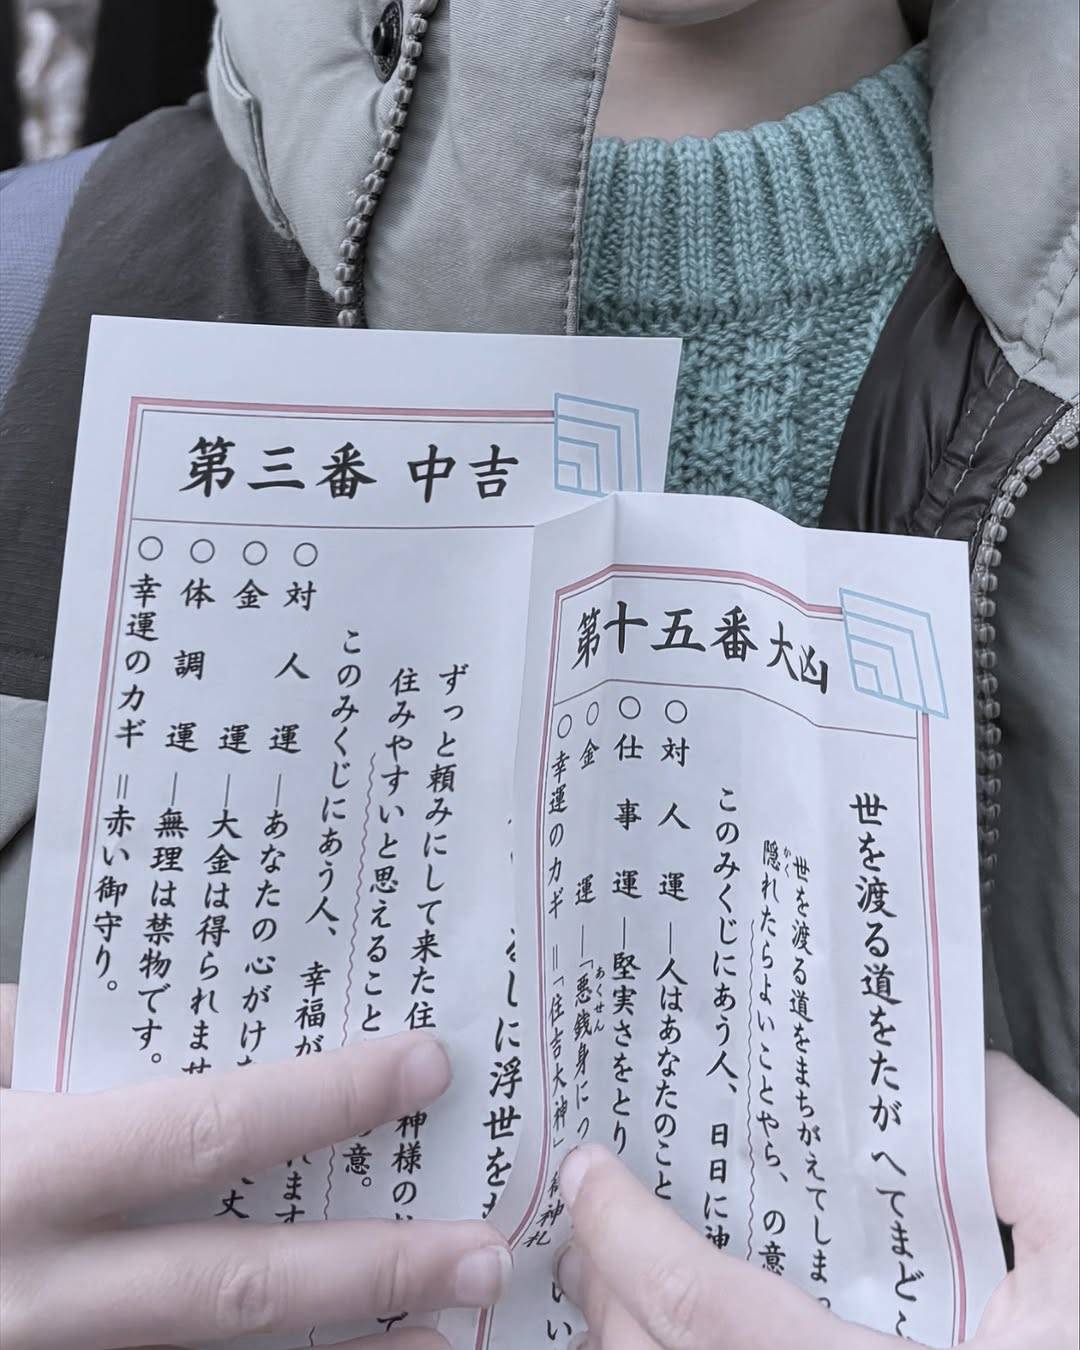 第三番 中吉
るしに浮世を
ずっと頼みにして来た住
神様の
住みやすいと思えること
意。
このみくじにあう人、幸福が
○対人運―あなたの心がけ
○金運―大金は得られませ
○体調運―無理は禁物です。
○幸運のカギ=赤い御守り。
第十五番 大凶
世を渡る道をたがへてまどこ
世を渡る道をまちがえてしま
隠れたらよいことやら、の意
かく
このみくじにあう人、日日に神
○対人運―人はあなたのこと
○仕事運―堅実さをとり
○金運―「悪銭身につ
あくせん
○幸運のカギ=「住吉大神」御神札